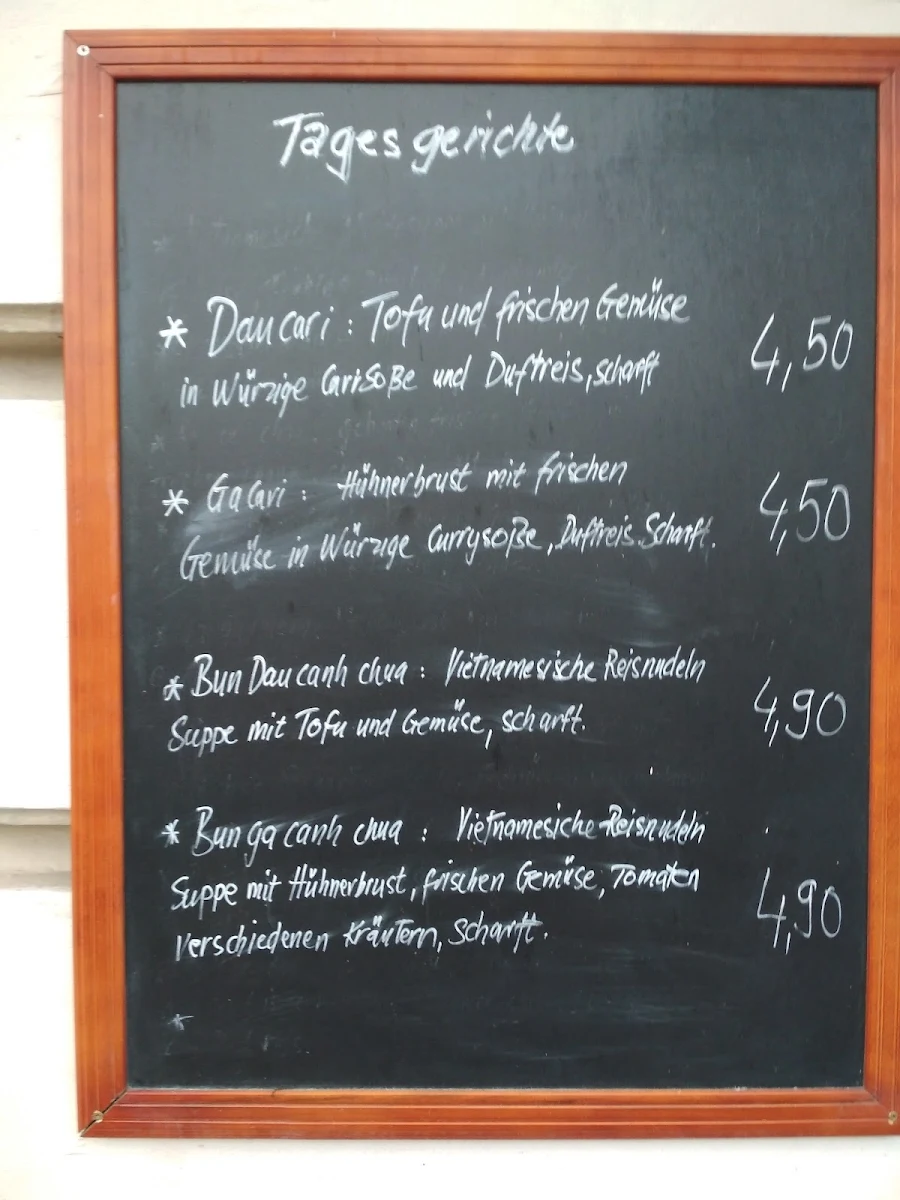 Tagesgerichte
* Dau cari : Tofu und frischen Gemüse
in Würzige CariSoße und Duftreis, scharft
4,50
* Ga Cari : Hühnerbrust mit frischen
Gemüse in Würzige Currysoße, Duftreis. Scharft.
4,50
* Bun Dau canh chua : Vietnamesische Reisnudeln
Suppe mit Tofu und Gemüse, scharft.
4,90
* Bun ga canh chua : Vietnamesiche Reisnudeln
Suppe mit Hühnerbrust, frischen Gemüse, Tomaten
verschiedenen Kräutern, Scharft.
4,90
*